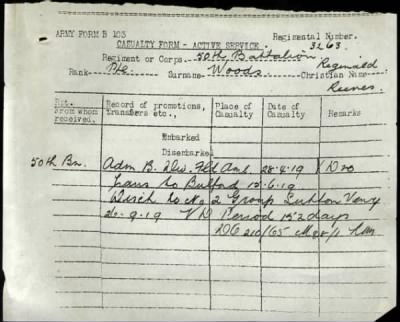 ARMY FORM B 103
Regimental Number.
CASUALTY FORM - ACTIVE SERVICE.
3263.
Regiment or Corps. 50th Battalion
Rank Pte Surname Woods Christian Name Reginald
Reeves.
Rpt. From whom received.
Record of promotions, transfers etc.,
Place of Casualty
Date of Casualty
Remarks
Embarked
Disembarked
50th Bn. Adm B. Div. Fld Amb. 28-4-19 VD
Trans to Bulford 12-6-19
Disch to No 2 Group Sutton Veny
26-9-19 VD Period 152 days
DO 210/65